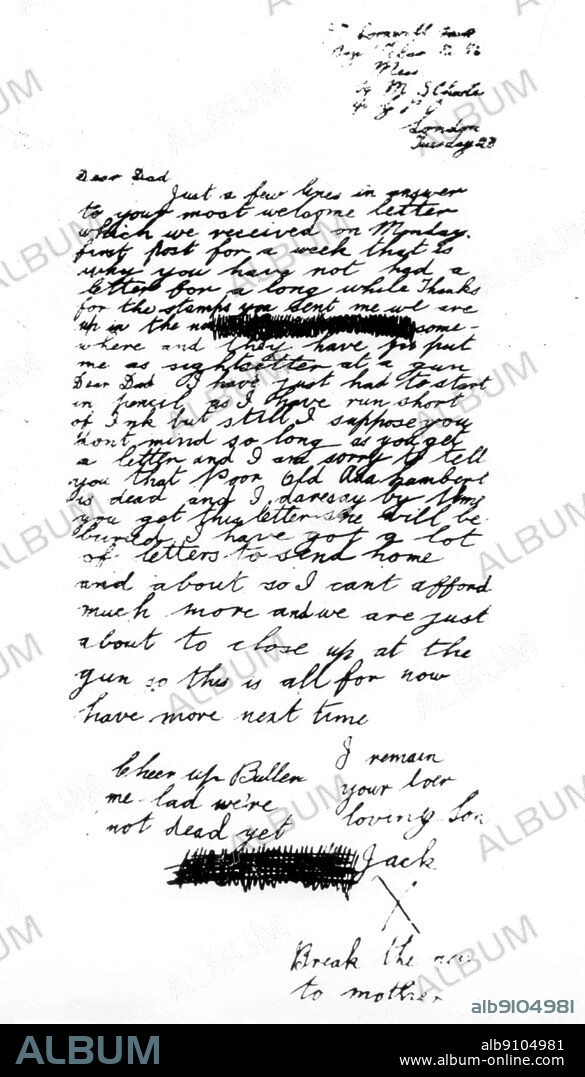 Cornwall
Mess
M S Charte
London
Tuesday 23
Dear Dad
Just a few lines in answer
to your most welcome letter
which we received on Monday.
first post for a week that is
why you have not had a
letter for a long while Thanks
for the stamps you sent me we are
up in the some-
where and they have put
me as sightsetter at a gun
Dear Dad I have just had to start
in pencil as I have run short
of Ink but still I suppose you
dont mind so long as you get
a letter and I am sorry to tell
you that Poor Old Ada Lambert
is dead and I daresay by time
you get this letter she will be
buried. I have got a lot
of letters to send home
and about so I cant afford
much more and we are just
about to close up at the
gun so this is all for now
have more next time
I remain
your
loving Son
Jack
Cheer up Bullen
me lad we're
not dead yet
Break the
to mother
ALBUM
alb9104981
ALBUM
alb9104981
www.album-online.com